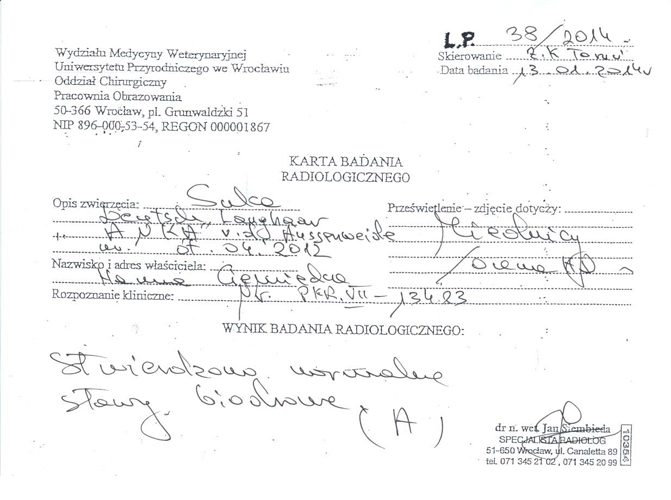 L.P. 38/2014
Wydziału Medycyny Weterynaryjnej
Uniwersytetu Przyrodniczego we Wrocławiu
Oddział Chirurgiczny
Pracownia Obrazowania
50-366 Wrocław, pl. Grunwaldzki 51
NIP 896-000-53-54, REGON 000001867
Skierowanie Z.K Toruń
Data badania 13.01.2014r
KARTA BADANIA
RADIOLOGICZNEGO
Opis zwierzęcia: Suka
Deutsch Langhaar
ANKA v.d. Aussenweide
ur. 04.2012
Prześwietlenie – zdjęcie dotyczy:
Miednicy
/ocena HD
Nazwisko i adres właściciela:
Hanna
Rozpoznanie kliniczne: Nr. PKR.VII – 13483
WYNIK BADANIA RADIOLOGICZNEGO:
Stwierdzono normalne
stawy biodrowe
(A)
dr n. wet. Jan Siembieda
SPECJALISTA RADIOLOG
51-650 Wrocław, ul. Canaletta 89
tel. 071 345 21 02, 071 345 20 99
10354